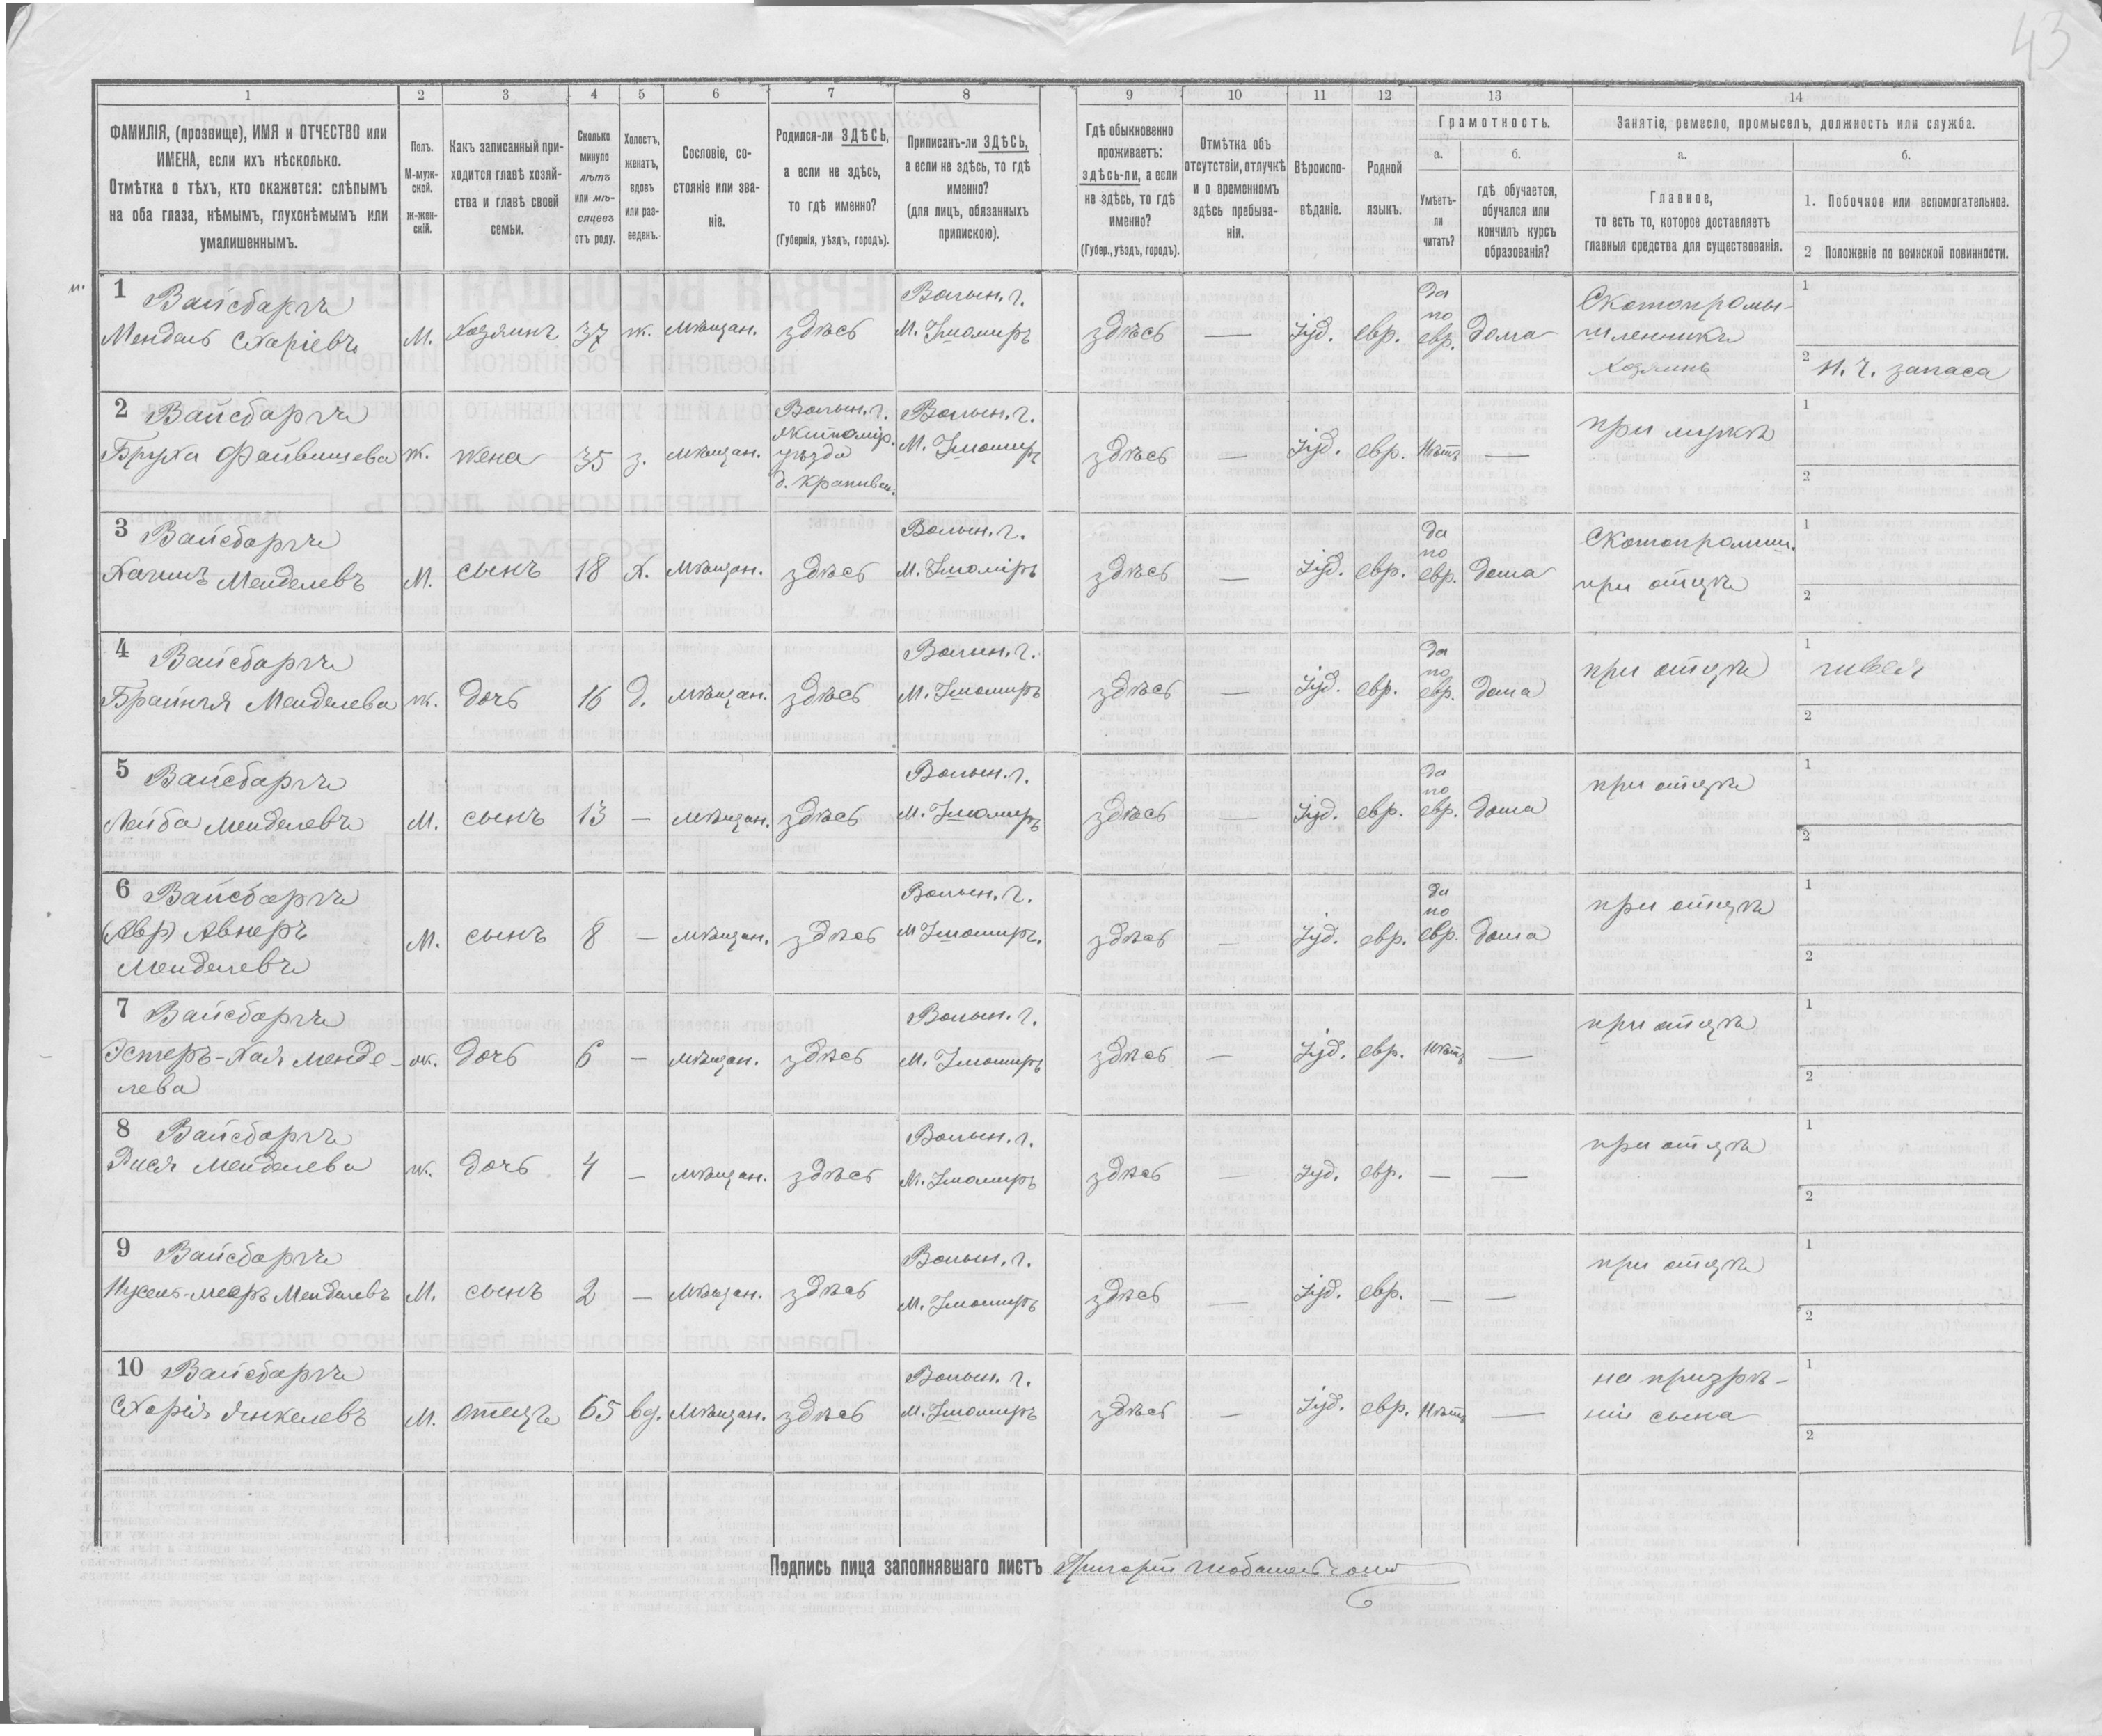 43
1 2 3 4 5 6 7 8 9 10 11 12 13 14
ФАМИЛІЯ, (прозвище), ИМЯ и ОТЧЕСТВО или
ИМЕНА, если ихъ нѣсколько.
Отмѣтка о тѣхъ, кто окажется: слѣпымъ
на оба глаза, нѣмымъ, глухонѣмымъ или
умалишеннымъ.
Полъ.
М-муж-
ской.
ж-жен-
скій.
Какъ записанный при-
ходится главѣ хозяй-
ства и главѣ своей
семьи.
Сколько
минуло
лѣтъ
или мѣ-
сяцевъ
отъ роду.
Холостъ,
женатъ,
вдовъ
или раз-
веденъ.
Сословіе, со-
стояніе или зва-
ніе.
Родился-ли ЗДѢСЬ,
а если не здѣсь,
то гдѣ именно?
(Губернія, уѣздъ, городъ).
Приписанъ-ли ЗДѢСЬ,
а если не здѣсь, то гдѣ
именно?
(для лицъ, обязанныхъ
припискою).
Гдѣ обыкновенно
проживаетъ:
здѣсь-ли, а если
не здѣсь, то гдѣ
именно?
(Губер., уѣздъ, городъ).
Отмѣтка объ
отсутствіи, отлучкѣ
и о временномъ
здѣсь пребыва-
ніи.
Вѣроиспо-
вѣданіе.
Родной
языкъ.
Грамотность.
а.
Умѣетъ-
ли
читать?
б.
гдѣ обучается,
обучался или
кончилъ курсъ
образованія?
Занятіе, ремесло, промыселъ, должность или служба.
а.
Главное,
то есть то, которое доставляетъ
главныя средства для существованія.
б.
1. Побочное или вспомогательное.
2 Положеніе по воинской повинности.
1 Вайсбаргъ
Мендель Схаріевъ
М. Хозяинъ 37 ж. мѣщан. здѣсь
Волын. г.
здѣсь — Іуд. евр.
да
по
евр. дома
Скотопромы-
шленникъ
Хозяинъ
1
2 Н. Ч. запаса
2 Вайсбаргъ
Бруха Файвишева
ж. жена 35 з. мѣщан.
Волын. г.
Житомір.
уѣзда
Волын. г.
здѣсь — Іуд. евр. Нѣтъ —
при мужѣ
1
2
3 Вайсбаргъ
Хаимъ Менделевъ
М. сынъ 18 Х. Мѣщан. здѣсь
Волын. г.
здѣсь — Іуд. евр.
да
по
евр. дома
Скотопромыш.
при отцѣ
1
2
4 Вайсбаргъ
Брайндля Менделева
ж. дочь 16 д. мѣщан. здѣсь
Волын. г.
здѣсь — Іуд. евр.
да
по
евр. дома
при отцѣ
1 швея
2
5 Вайсбаргъ
Лейба Менделевъ
М. сынъ 13 — мѣщан. здѣсь
Волын. г.
здѣсь — Іуд. евр.
да
по
евр. дома
при отцѣ
1
2
6 Вайсбаргъ
(Авр) Авнеръ
Менделевъ
М. сынъ 8 — мѣщан. здѣсь
Волын. г.
здѣсь — Іуд. евр.
да
по
евр. дома
при отцѣ
1
2
7 Вайсбаргъ
Эстеръ-Хая Менде-
лева
ж. дочь 6 — мѣщан. здѣсь
Волын. г.
здѣсь — Іуд. евр. Нѣтъ —
при отцѣ
1
2
8 Вайсбаргъ
Менделева
ж. дочь 4 — мѣщан. здѣсь
Волын. г.
здѣсь — Іуд. евр. — —
при отцѣ
1
2
9 Вайсбаргъ
Менделевъ
М. сынъ 2 — Мѣщан. здѣсь
Волын. г.
здѣсь — Іуд. евр. — —
при отцѣ
1
2
10 Вайсбаргъ
Схарія Янкелевъ
М. отецъ 65 вд. Мѣщан. здѣсь
Волын. г.
здѣсь — Іуд. евр. Нѣтъ —
на призрѣ-
ніи сына
1
2
Подпись лица заполнявшаго листъ